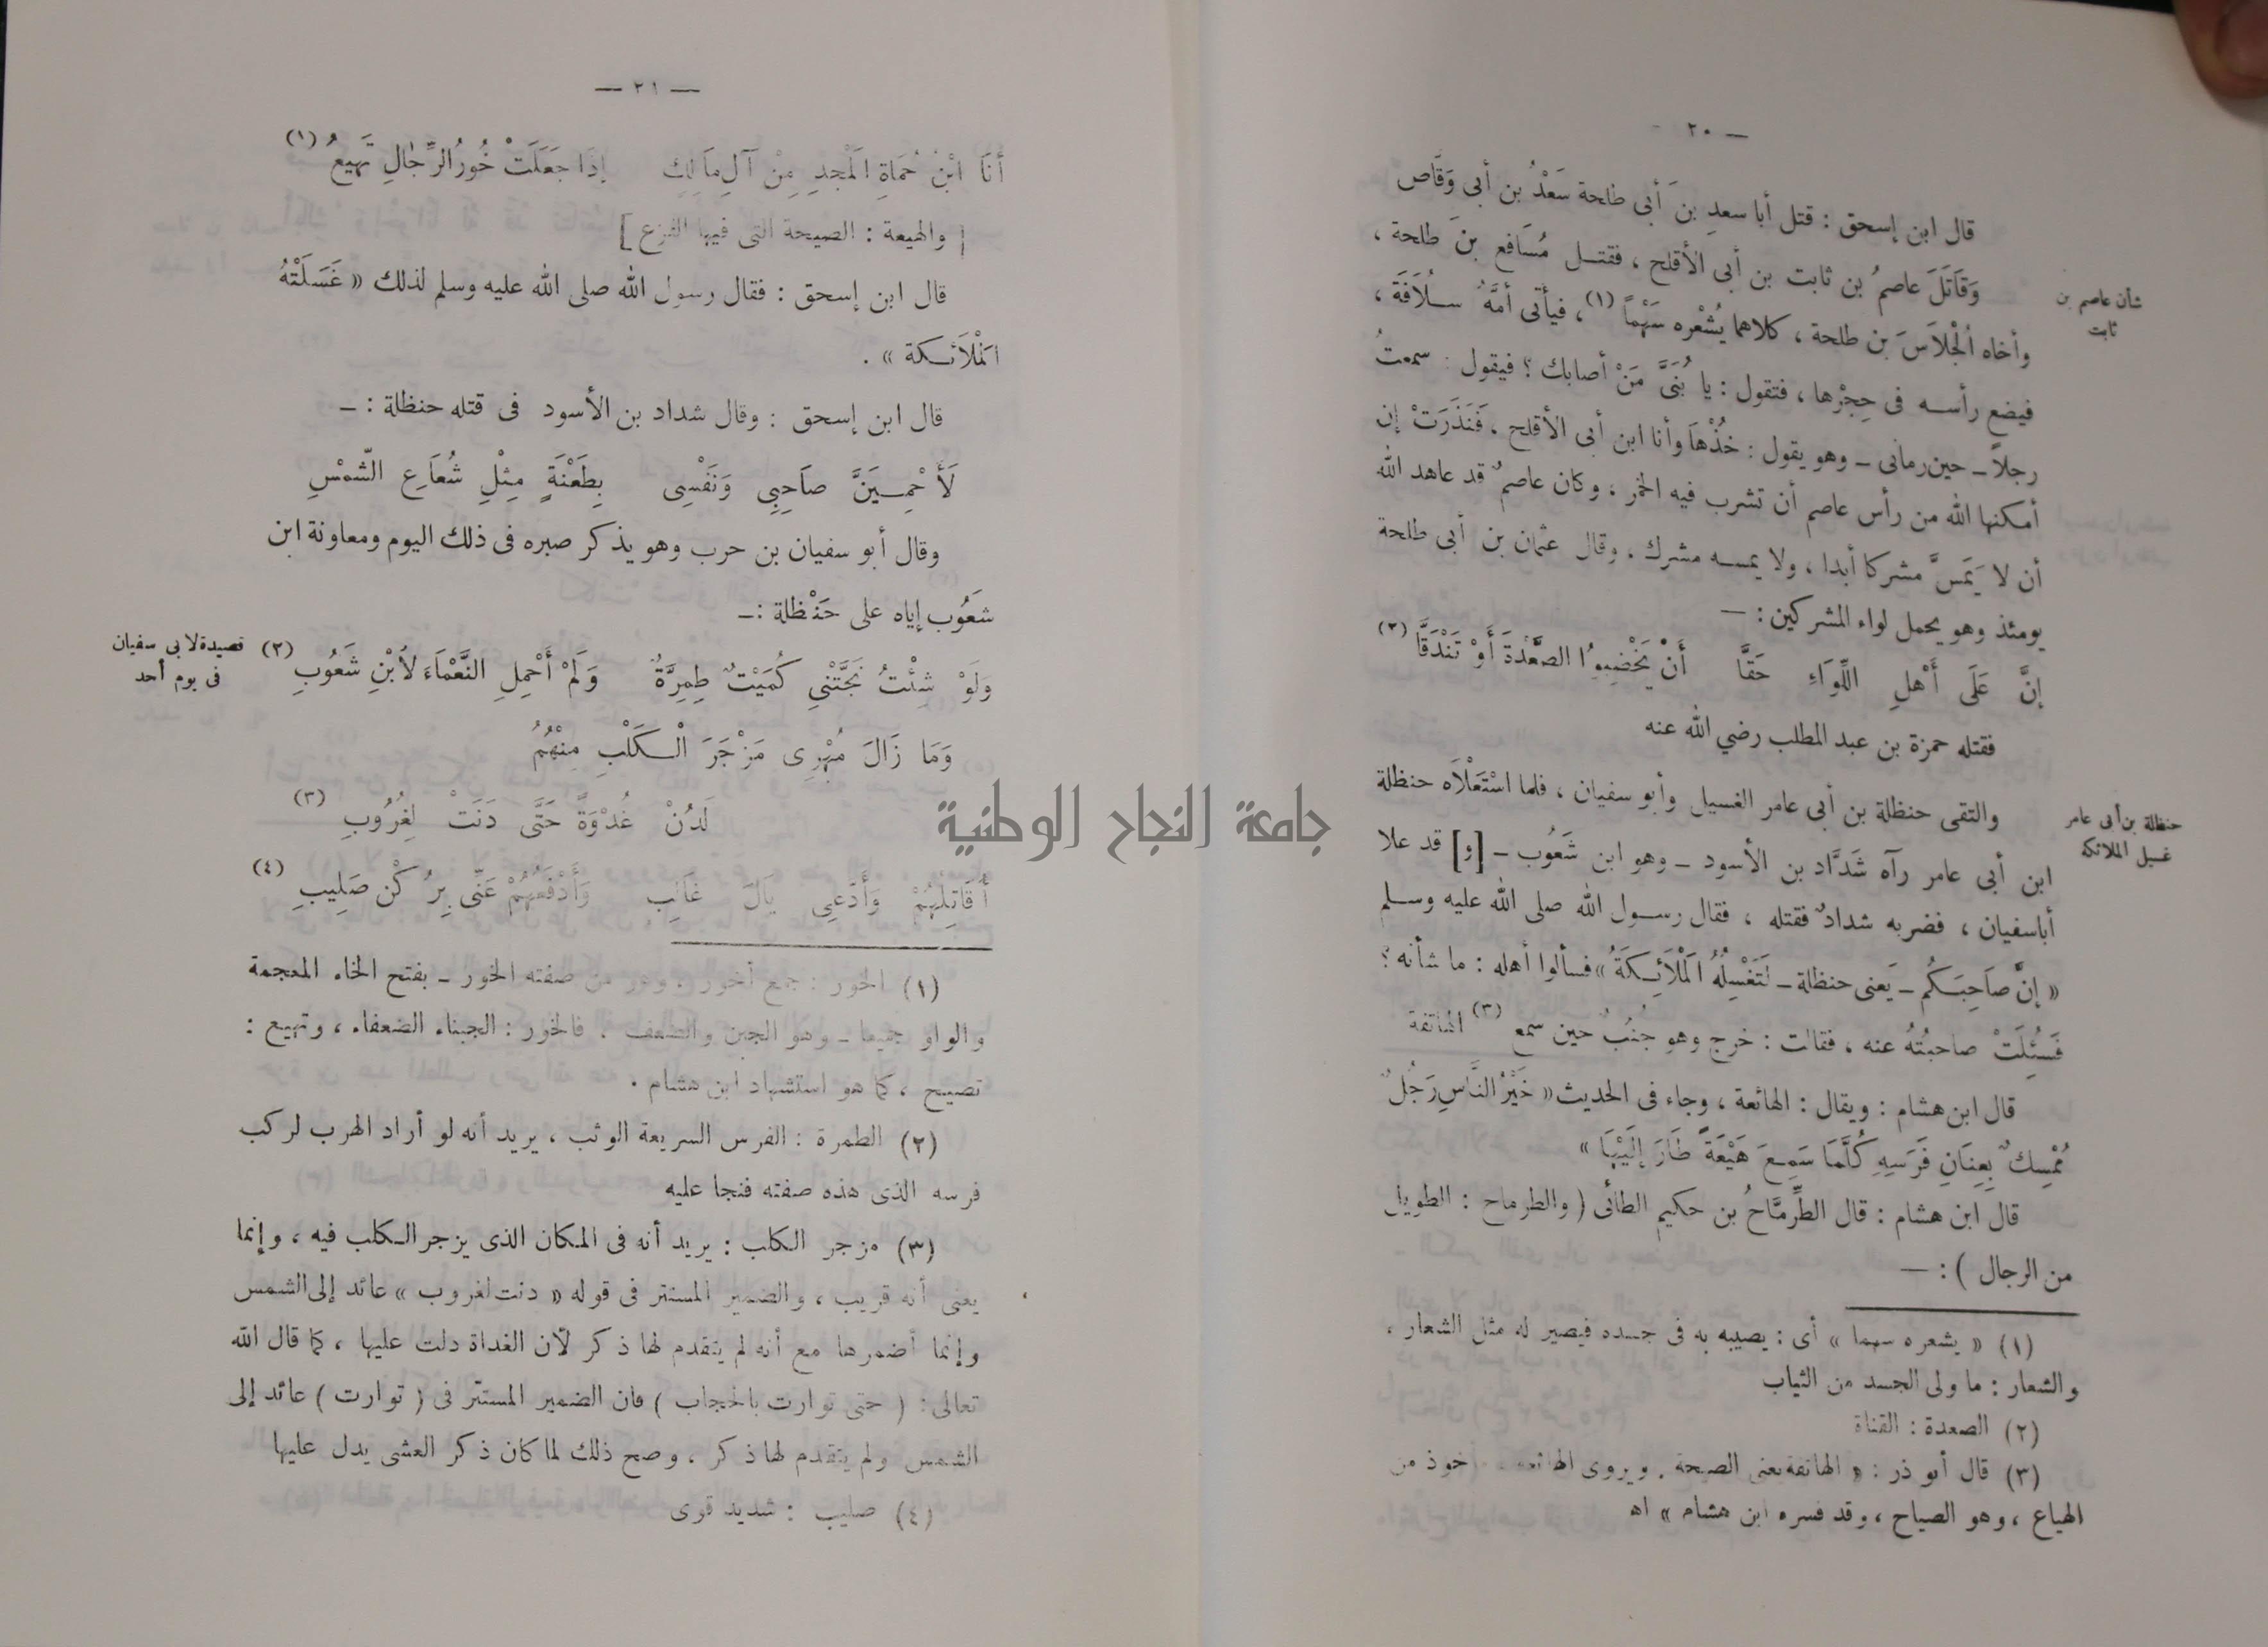 — ٢٠ —
قال ابن إسحق : قتل أبا سعدِ بنَ أبى طلحة سَعْدُ بن أبى وَقَّاص
وَقَاتَلَ عاصمُ بن ثابت بن أبى الأقلح ، فقتــل مُسَافع بنَ طلحة ،
شأن عاصم بن
ثابت
وأخاه الْجُلَاسَ بن طلحة ، كلاهما يُشْعْره سَهْماً (١) ، فيأتى أمَّهُ سـلُاَفَةَ ،
فيضع رأســه فى حِجْرها ، فتقول : يا بُنَىَّ مَنْ أصابك ؟ فيقول : سمعتُ
رجلاً ــ حين رمانى ــ وهو يقول : خُذْهاَ وأنا ابن أبى الأقلح ، فَنَذَرَتْ إن
أمكنها الله من رأس عاصم أن تشرب فيه الخمر ، وكان عاصمٌ قد عاهد الله
أن لا يَمَسَّ مشركا أبدا ، ولا يمســه مشرك . وقال عثمان بن أبى طلحة
يومئذ وهو يحمل لواء المشركين : —
إنَّ عَلَى أَهْلِ اللِّوَاءِ حَقَّا أَنْ يَخْضِبوُا الصَّعْدَةَ أَوْ تَنْدَقَّا (٢)
فقتله حمزة بن عبد المطلب رضي الله عنه
والتقى حنظلة بن أبى عامر الغسيل وأبو سفيان ، فلما اسْتَعْلَاه حنظلة
حنظلة بن أبى عامر
غسيل الملائكة
ابن أبى عامر رآه شَدَّاد بن الأسود ــ وهو ابن شَعُوب ــ [و] قد علا
أبا سفيان ، فضربه شدادٌ فقتله ، فقال رســول الله صلى الله عليه وسـلم
« إنَّ صَاحِبَـكُم ــ يَعنى حنظلة ــ لَتَغْسِلُهُ الْمَلَائِـكَةُ » فسألوا أهله : ما شأنه ؟
فَسُئِلَتْ صاحبتُهُ عنه ، فقالت : خرج وهو جُنُبٌ حين سمع (٣) الهاتفة
قال ابن هشام : ويقال : الهائعة ، وجاء فى الحديث « خَيْرُ النَّاسِ رَجُلٌ
مُمْسِكٌ بِعِنَانِ فَرَسِهِ كُلَّمَا سَمِعَ هَيْعَةً طَارَ إلَيْهَا »
قال ابن هشام : قال الطِّرِمَّاحُ بن حكيم الطائى ( والطرماح : الطويل
من الرجال ) : —
(١) « يشعره سهما » أى : يصيبه به فى جسده فيصير له مثل الشعار ،
والشعار : ما ولى الجسد من الثياب
(٢) الصعدة : القناة
(٣) قال أبو ذر : « الهاتفة يعنى الصيحة . ويروى الهائعة ، مأخوذ من
الهياع ، وهو الصياح ، وقد فسره ابن هشام » اهـ
— ٢١ —
أَنَا ابْنُ حُمَاةِ الْمَجْدِ مِنْ آلِ مَالِكٍ إذَا جَعَلَتْ خُورُ الرِّجَالِ تَهِيعُ (١)
[ والهيعة : الصيحة التى فيها الفزع ]
قال ابن إسحق : فقال رسول الله صلى الله عليه وسلم لذلك « غَسَلَتْهُ
الْمَلَائـكة » .
قال ابن إسحق : وقال شداد بن الأسود فى قتله حنظلة : ــ
لَأَحْمِــيَنَّ صَاحِبِى وَنَفْسِى بِطَعْنَةٍ مِثْلِ شُعَاعِ الشَّمْسِ
وقال أبو سفيان بن حرب وهو يذكر صبره فى ذلك اليوم ومعاونة ابن
شَعُوب إياه على حَنْظلة : ــ
وَلَوْ شِئْتُ نَجَّتْنِى كُمَيْتٌ طِمِرَّةٌ وَلَمْ أَحْمِلِ النَّعْمَاءَ لاُبْنِ شَعُوبِ (٢)
قصيدة لابى سفيان
فى يوم أحد
وَمَا زَالَ مُهْرِى مَزْجَرَ الْـكَلْبِ مِنْهُمُ
لَدُنْ غُدْوَةً حَتَّى دَنَتْ لِغُرُوبِ (٣)
أُقَاتِلُهُمْ وَأَدَّعِى يَالَ غَالِبٍ وَأَدْفَعُهُمْ عَنِّى بِرُكْنِ صَلِيبِ (٤)
(١) الخور : جمع أخور ، وهو من صفته الخور ــ بفتح الخاء المعجمة
والواو جميعا ــ وهو الجبن والضعف . فالخور : الجبناء الضعفاء ، وتهيع :
تصيح ، كما هو استشهاد ابن هشام .
(٢) الطمرة : الفرس السريعة الوثب ، يريد أنه لو أراد الهرب لركب
فرسه الذى هذه صفته فنجا عليه
(٣) مزجر الكلب : يريد أنه فى المكان الذى يزجر الكلب فيه ، وإنما
يعنى أنه قريب ، والضمير المستتر فى قوله « دنت لغروب » عائد إلى الشمس
وإنما أضمرها مع أنه لم يتقدم لها ذكر لأن الغداة دلت عليها ، كما قال الله
تعالى : ( حتى توارت بالحجاب ) فان الضمير المستتر فى ( توارت ) عائد إلى
الشمس ولم يتقدم لها ذكر ، وصح ذلك لما كان ذكر العشى يدل عليها
(٤) صليب : شديد قوى
جامعة النجاح الوطنية